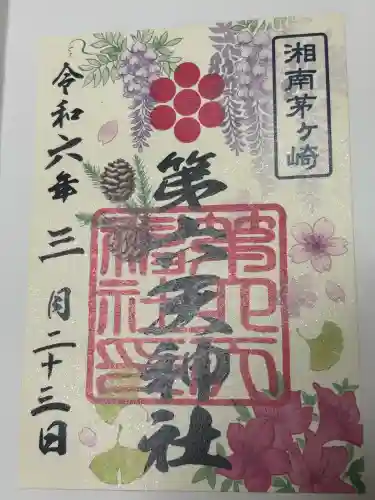 湘南茅ヶ崎
第六天神社
令和六年三月二十三日